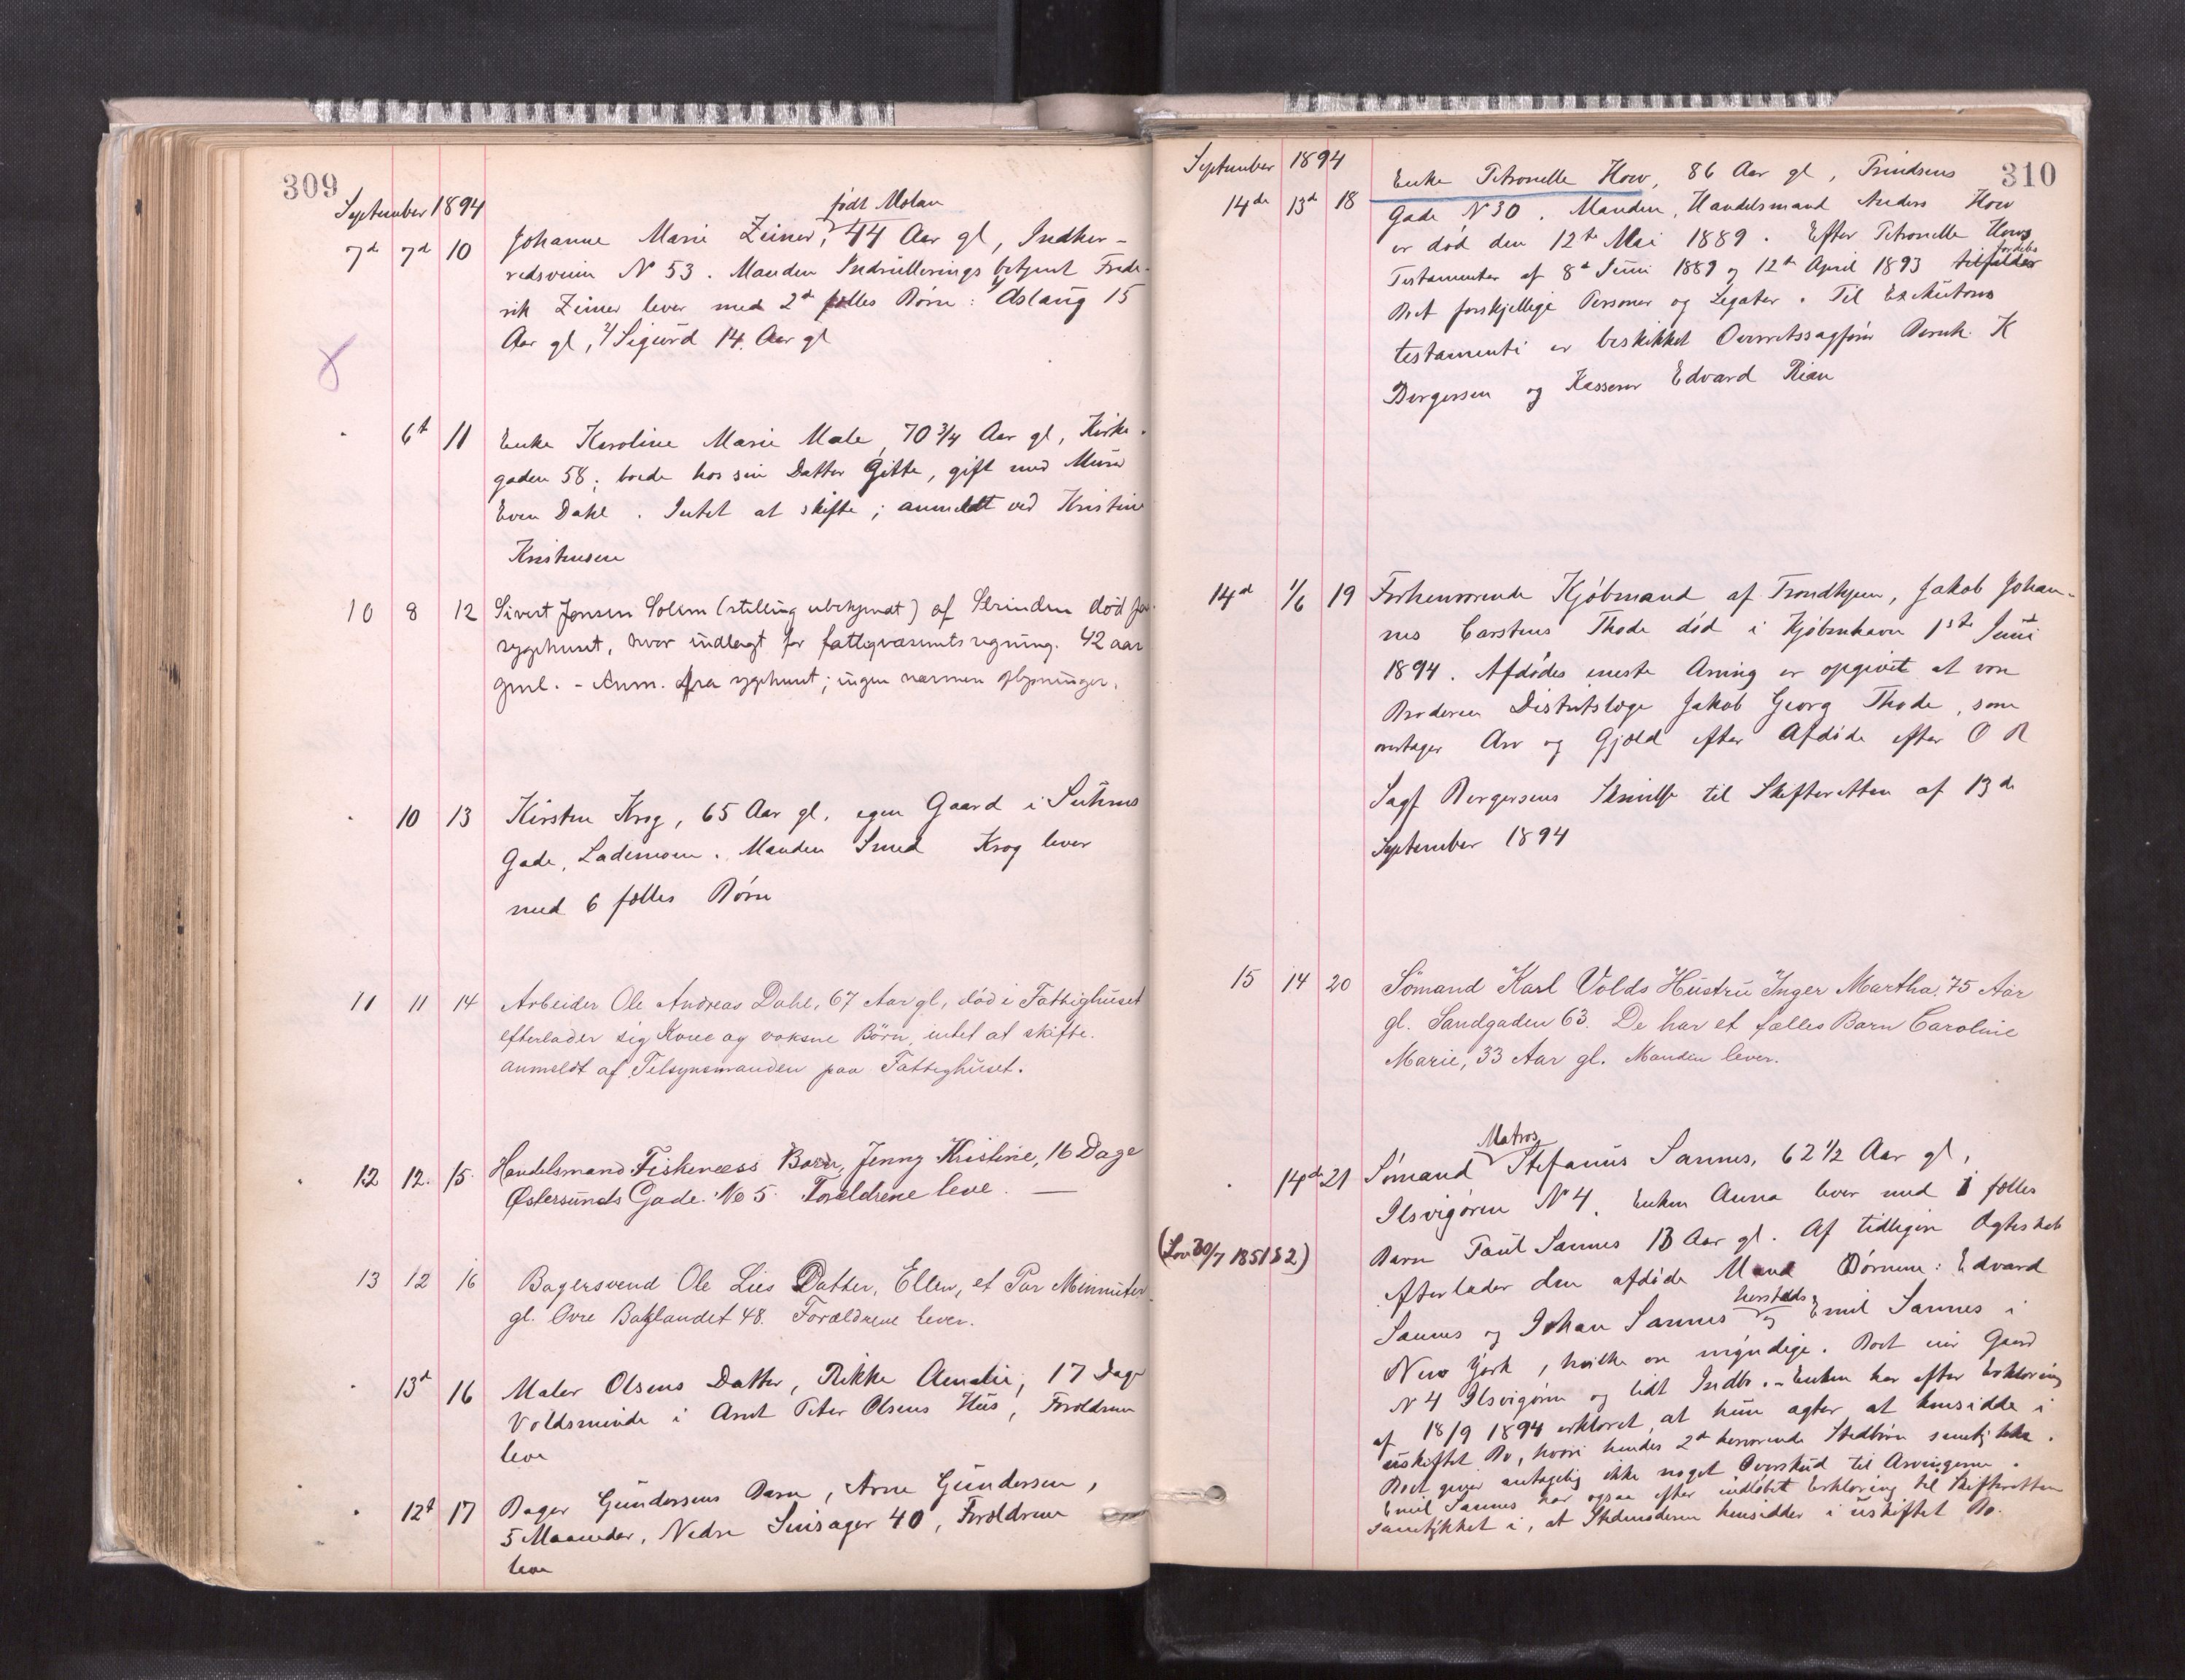 309
September 1894
født Molan
7d 7d 10 Johanne Marie Zeiner, 44 Aar gl, Indher-
redsveien N 53. Manden Indrulleringsbetjent Frede-
rik Zeiner lever med 2de fælles Børn: 1/ Aslaug 15
Aar gl, 2/ Sigurd 14 Aar gl
6t 11 Enke Karoline Marie Male, 70 3/4 Aar gl, Kirke-
gaden 58; boede hos sin Datter Gitte, gift med Murer
Even Dahl. Intet at skifte; anmeldt ved Kristine
Kristensen
10 8 12 Sivert Jensen Solem (stilling ubekjendt) af Strinden død paa
sygehuset, hvor indlagt for fattigvæsenets regning. 42 aar
gml. - Anm. fra sygehuset; ingen nærmere oplysninger.
10 13 Kirsten Krog, 65 Aar gl, egen Gaard i Suhms
Gade, Lademoen. Manden Smed Krog lever
med 6 fælles Børn
11 11 14 Arbeider Ole Andreas Dahl, 67 Aar gl, død i Fattighuset
efterlader sig Kone og voksne Børn, intet at skifte.
anmeldt af Tilsynsmanden paa Fattighuset.
12 12. 15. Handelsmand Fiskeness Barn, Jenny Kristine, 16 Dage
Østersunds Gade No 5. Forældrene leve. —
13 12 16 Bagersvend Ole Lies Datter, Ellen, et Par Minnuter
gl. Øvre Baklandet 48. Forældrene lever.
13d 16 Maler Olsens Datter, Rikke Amalie, 17 Dage
Voldsminde i Arnt Peter Olsens Hus, Forældrene
leve
12t 17 Bager Gundersens Barn, Arne Gundersen,
5 Maaneder, Nedre Enisager 40, Forældrene
leve
310
September 1894
14de 13d 18 Enke Petronelle How, 86 Aar gl, Prindsens
Gade N 30. Manden, Handelsmand Anders How
er død den 12te Mai 1889. Efter Petronelle Hows
fordeles
Testamenter af 8d Juni 1889 og 12te April 1893 tilfalder
Boet forskjellige Personer og Legater. Til Exekutores
testamenti er beskikket Overretssagfører Bernh. K
Bergersen og Kasserer Edvard Rian
14d 1/6 19 Forhenværende Kjøbmand af Trondhjem, Jakob Johan-
nes Carstens Thode død i Kjøbenhavn 1ste Juni
1894. Afdødes eneste Arving er opgivet at være
Broderen Distriktslæge Jakob Georg Thode, som
overtager Arv og Gjæld efter Afdøde efter O R
Sagf Bergersens Skrivelse til Skifteretten af 13de
September 1894
15 14 20 Sömand Karl Volds Hustru Inger Martha. 75 Aar
gl. Sandgaden 63. De har et fælles Barn Caroline
Marie, 33 Aar gl. Manden lever.
Matros
14de 21 Sømand Stefanus Sannes, 62 1/2 Aar gl,
Ilsvigøren N 4. Enken Anna lever med 1 fælles
(Lov 30/7 1851 § 2) Barn Paul Sannes 13 Aar gl. Af tidligere Ægteskab
efterlader den afdøde Mand Børnene: Edvard
herstæds
Sannes og Johan Sannes og Emil Sannes i
New York, hvilke ere myndige. Boet eier Gaard
N 4 Ilsvigøren og lidt Indbo. - Enken har efter Erklæring
af 18/9 1894 erklæret, at hun agter at hensidde i
uskiftet Bo, hvori hendes 2de herværende Stedbørn samtykker.
Boet giver antagelig ikke noget Overskud til Arvingerne.
Emil Sannes har ogsaa efter indløbet Erklæring til Skifteretten
samtykket i, at Stedmoderen hensidder i uskiftet Bo.